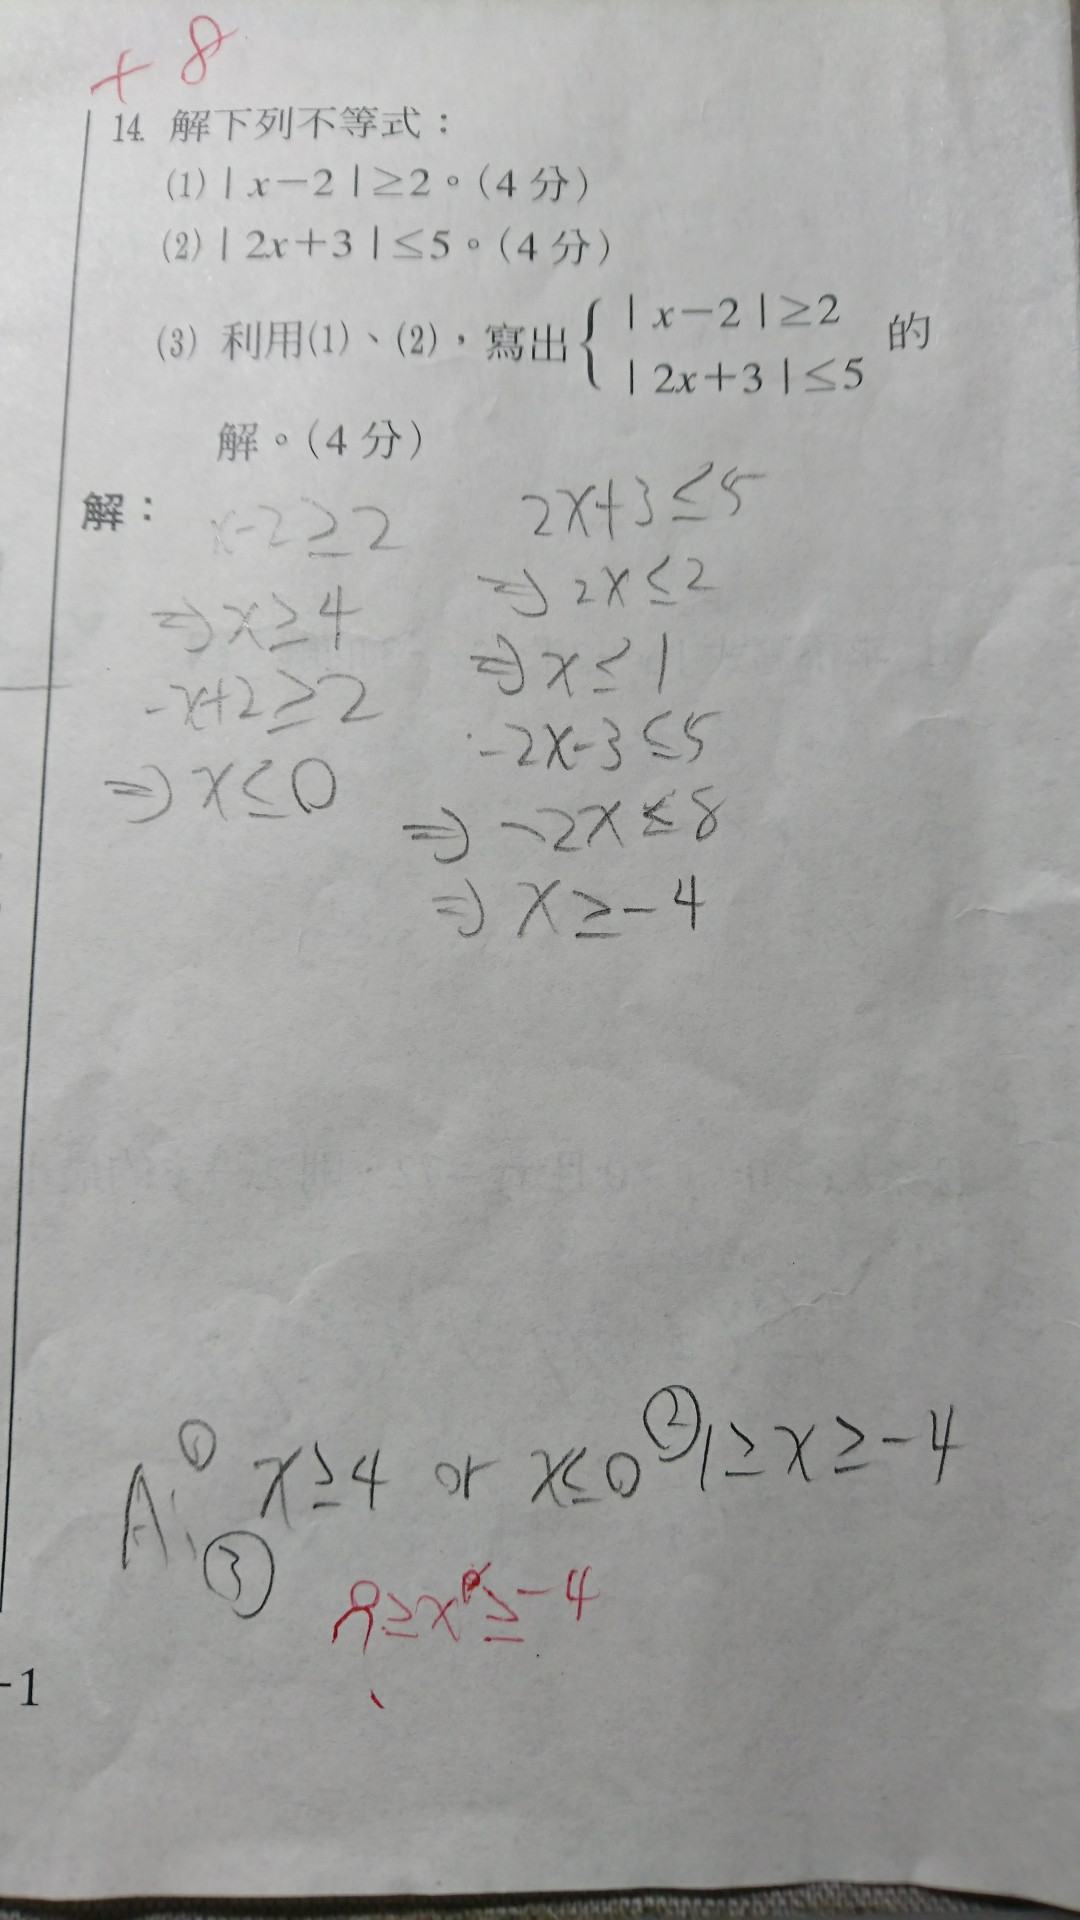 +8
14. 解下列不等式：
(1)|x-2|≥2。(4分)
(2)|2x+3|≤5。(4分)
(3) 利用(1)、(2)，寫出{|x-2|≥2
|2x+3|≤5 的
解。(4分)
解：
x-2≥2
⇒x≥4
-x+2≥2
⇒x≤0
2x+3≤5
⇒2x≤2
⇒x≤1
-2x-3≤5
⇒-2x≤8
⇒x≥-4
A: ① x≥4 or x≤0 ② 1≥x≥-4
③
≥x≥-4
-1